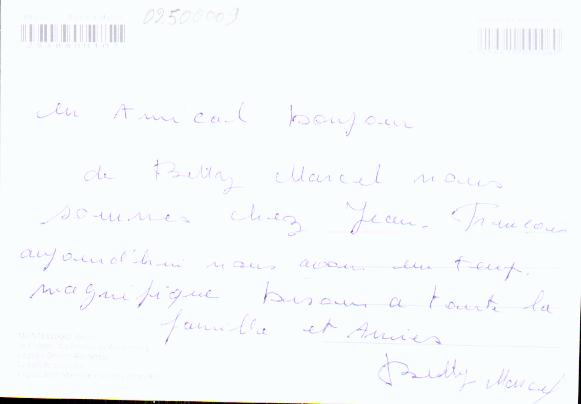 02500009
un Amical bonjour
de Betty Marcel nous
sommes chez Jean-François
aujourd'hui nous avons un temp.
magnifique bisous a toute la
famille et Amies
Betty Marcel